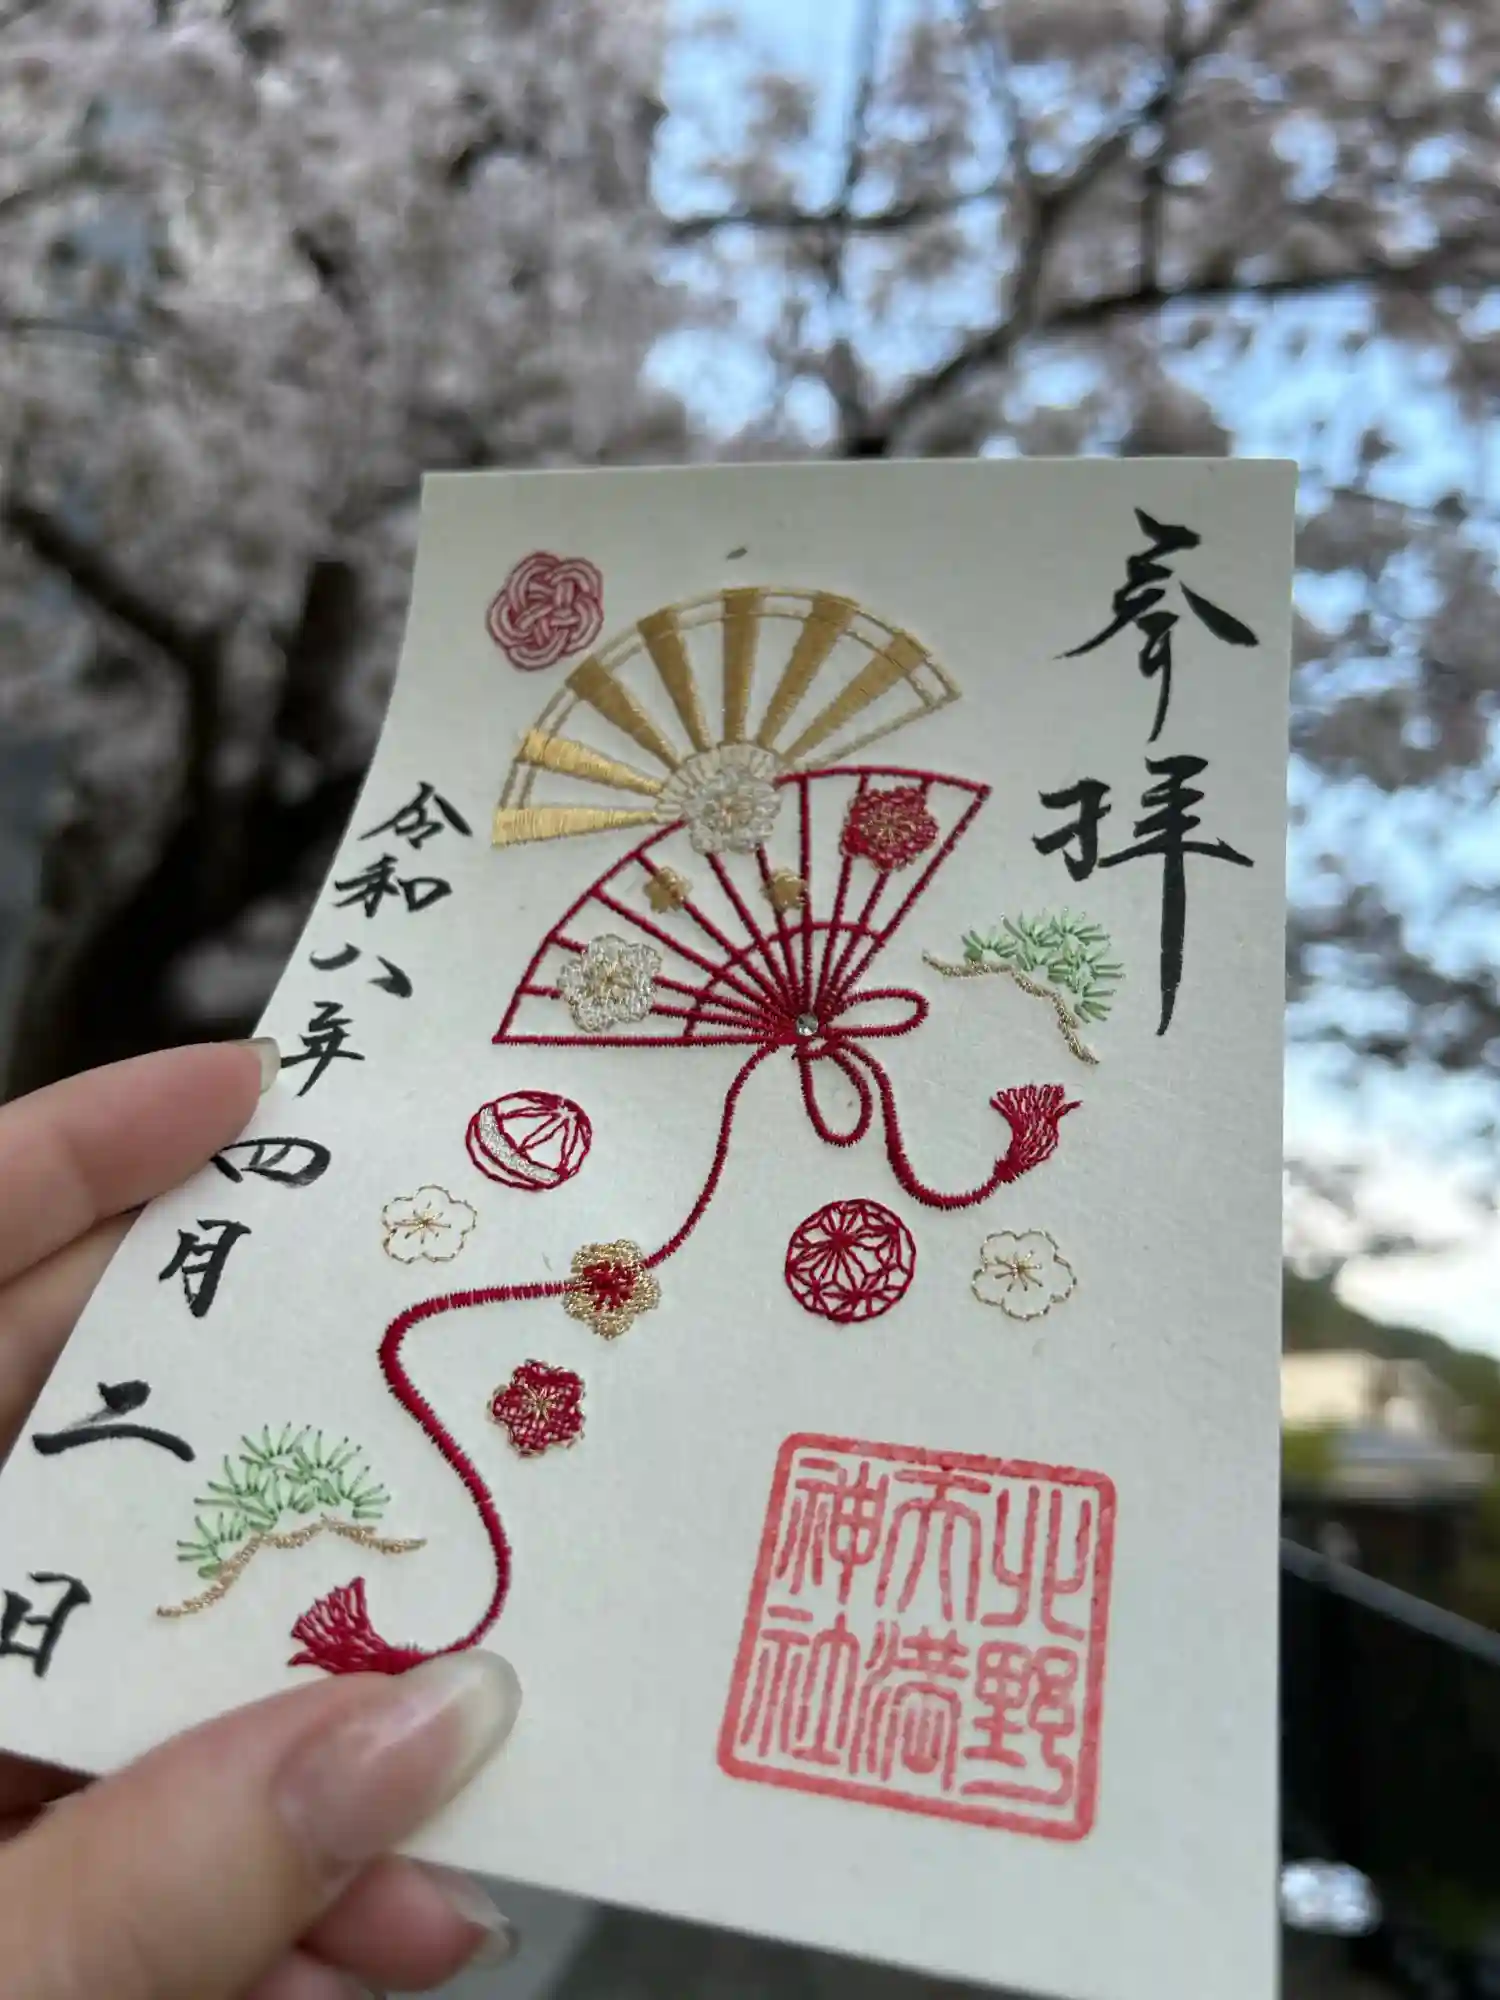 参拝
北野
天満
神社
令和八年四月二日